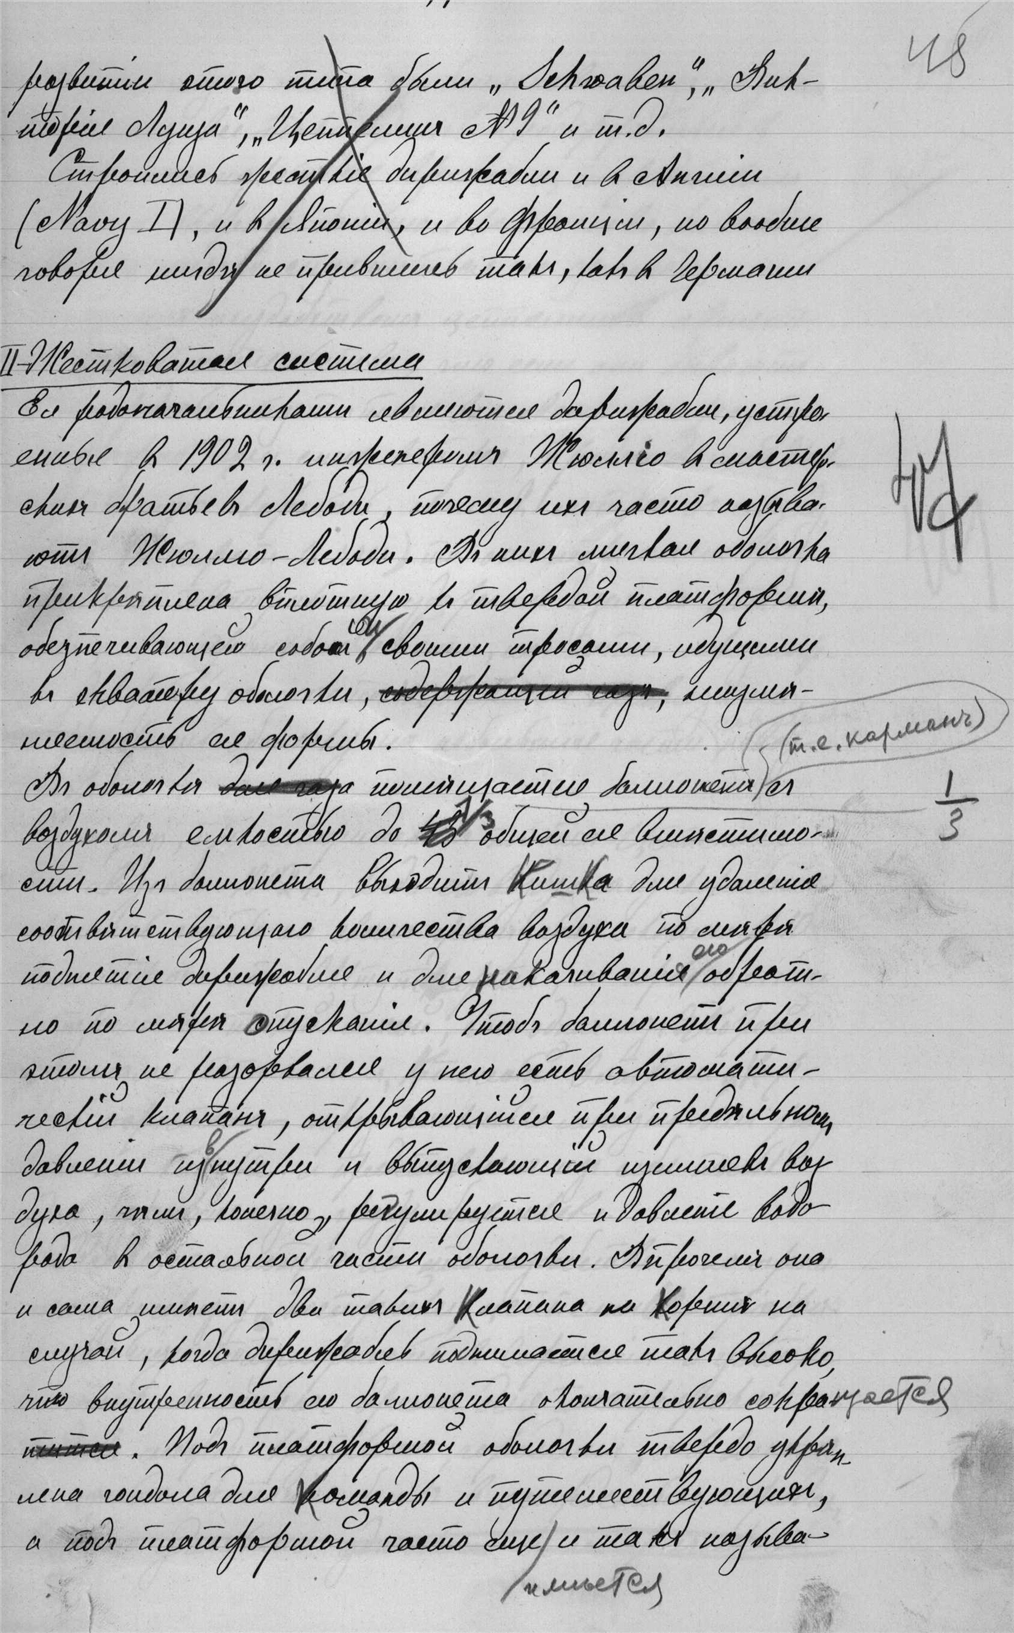 48
развитіи этого типа были „Schwaben“, „Вик-
торія Луиза“, „Цеппелинъ №9“ и т.д.
Строились жесткіе дирижабли и въ Англіи
(Navy I), и въ Японіи, и во Франціи, но вообще
говоря нигдѣ не привились такъ, какъ въ Германіи
II-Жестковатая система
Ея родоначальниками являются дирижабли, устро-
енные въ 1902 г. инженеромъ Жюлліо въ мастер-
скихъ братьевъ Лебоди, почему ихъ часто называ-
ютъ Жюлліо-Лебоди. Въ нихъ мягкая оболочка
47
прикрѣплена вплотную къ твердой платформѣ,
обезпечивающей собой и своими тросами, идущими
къ экватору оболочки, содержащей газъ, неизмѣ-
няемость ея формы.
(т.е. карманъ)
Въ оболочкѣ для газа помѣщается баллонетъ съ
воздухомъ емкостью до 1/3 общей ея вмѣстимо-
1/3
сти. Изъ баллонета выходитъ кишка для удаленія
соотвѣтствующаго количества воздуха по мѣрѣ
поднятія дирижабля и для накачиванія его обрат-
но по мѣрѣ опусканія. Чтобъ баллонетъ при
этомъ не разорвался у него есть автомати-
ческій клапанъ, открывающійся при предѣльномъ
давленіи извнутри и выпускающій излишекъ воз-
духа, чѣмъ, конечно, регулируется и давленіе водо-
рода въ остальной части оболочки. Впрочемъ она
и сама имѣетъ два такихъ клапана на кормѣ на
случай, когда дирижабль поднимается такъ высоко,
что внутренность его баллонета окончательно сокращается
. Подъ платформой оболочки твердо укрѣп-
лена гондола для команды и путешествующихъ,
а подъ платформой часто еще и такъ называ-
имѣется